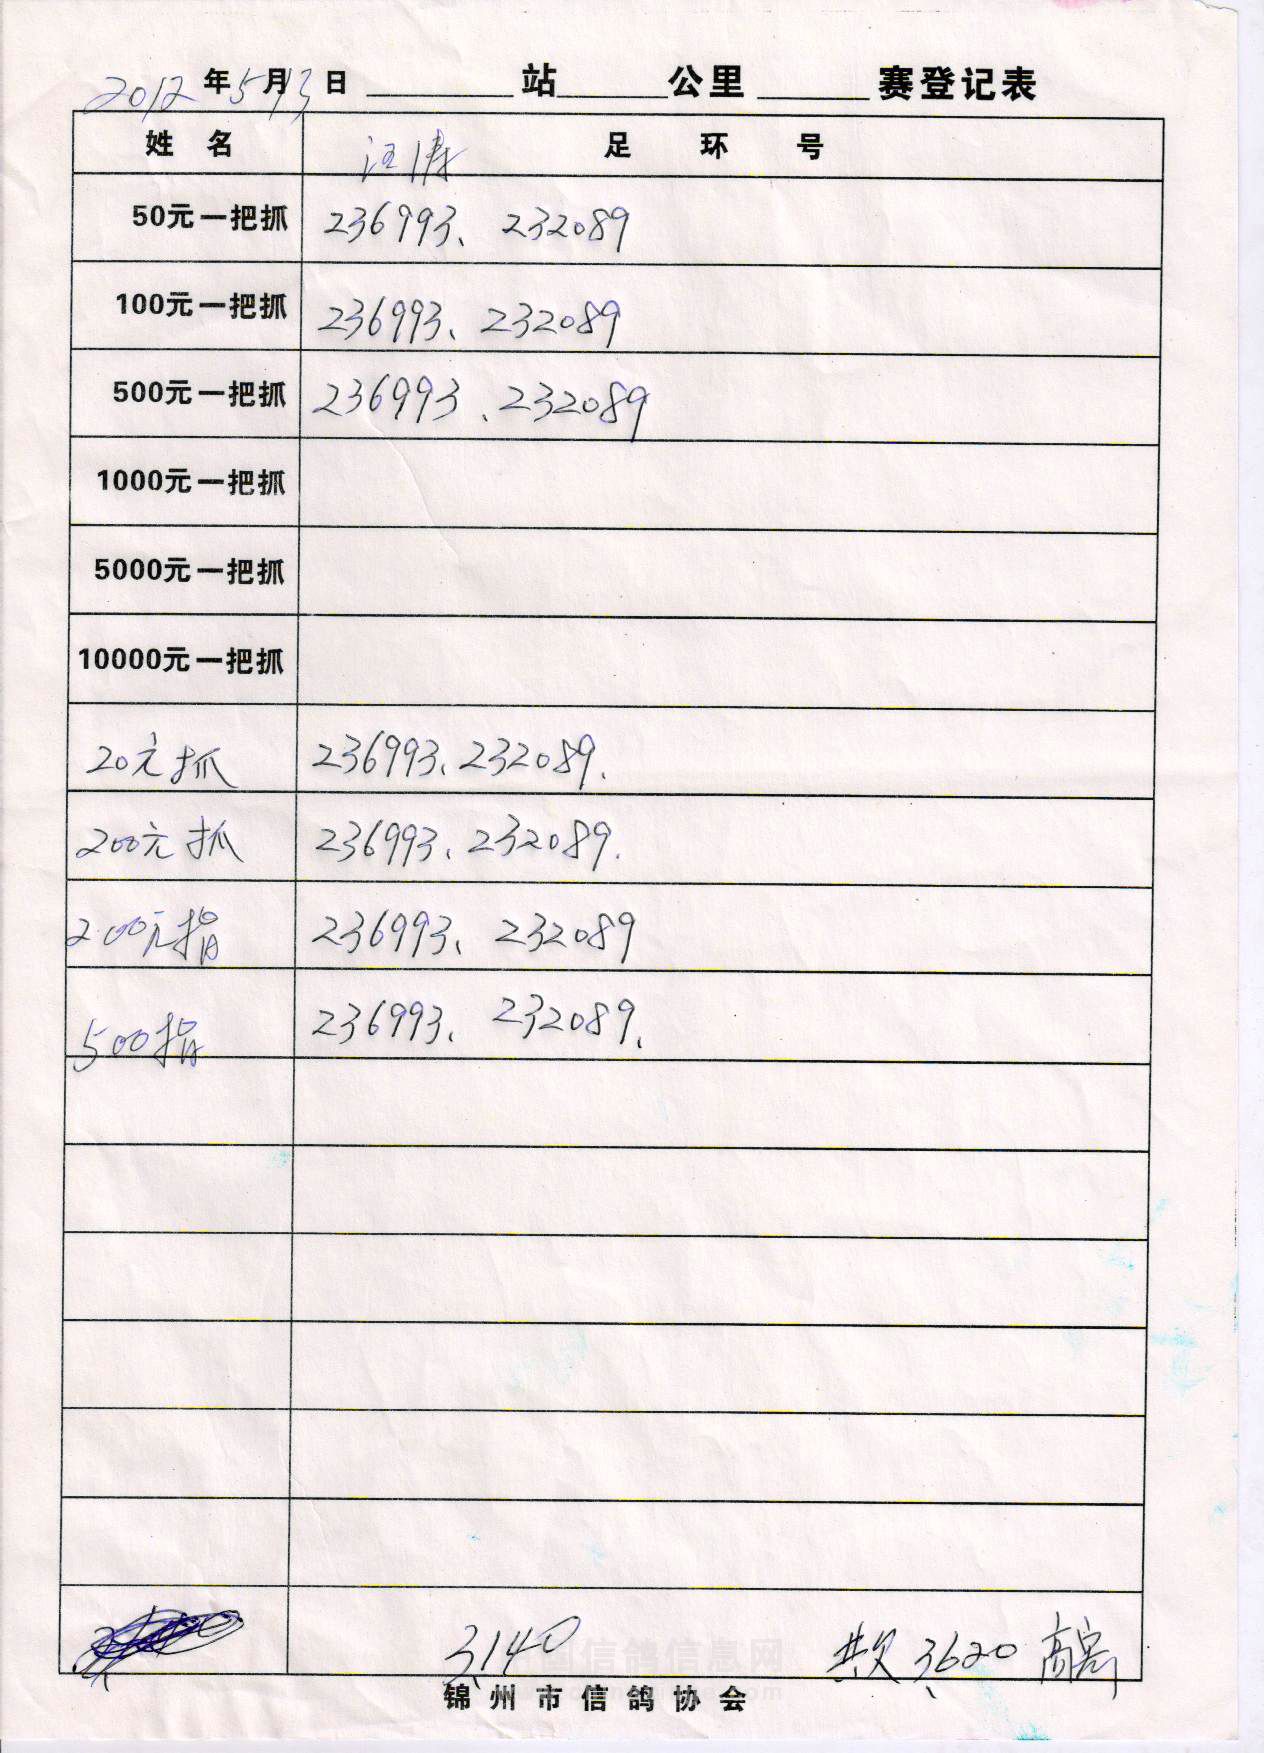 2012年5月13日 站 公里 赛登记表
姓名 汪涛 足环号
50元一把抓 236993、232089
100元一把抓 236993、232089
500元一把抓 236993、232089
1000元一把抓
5000元一把抓
10000元一把抓
20元抓 236993、232089、
200元抓 236993、232089.
200元指 236993、232089
500指 236993、232089、
3140 共欠3620
锦州市信鸽协会